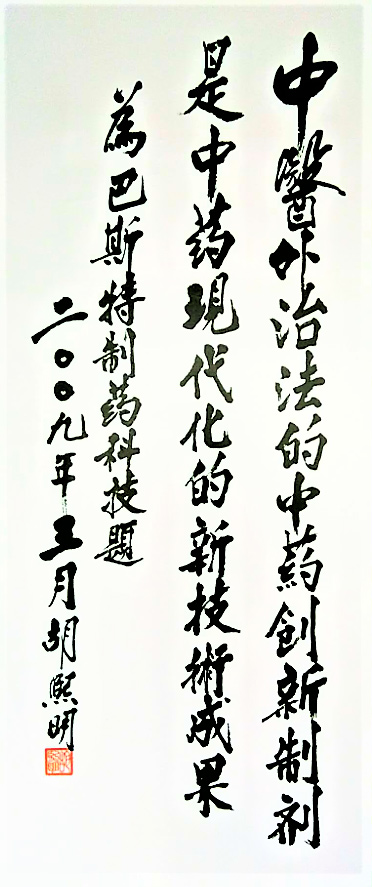 中醫外治法的中药創新制剂
是中药現代化的新技術成果
為巴斯特制药科技題
二〇〇九年三月胡熙明